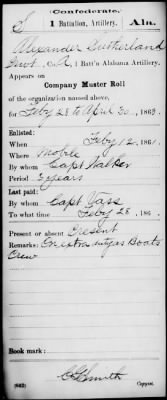 Confederate.
S 1 Battalion, Artillery. Ala.
Alexander Sutherland
Pvt., Co. A, 1 Batt'n Alabama Artillery.
Appears on
Company Muster Roll
of the organization named above,
for Feby 28 to April 30, 186
Enlisted:
When Feby 12, 1861.
Where Mobile
By whom Capt Walker
Period 3 years
Last paid:
By whom Capt Vass
To what time Feby 28, 186
Present or absent Present
Remarks: On extra duty as Boats
Crew
Book mark:
(642) Copyist.